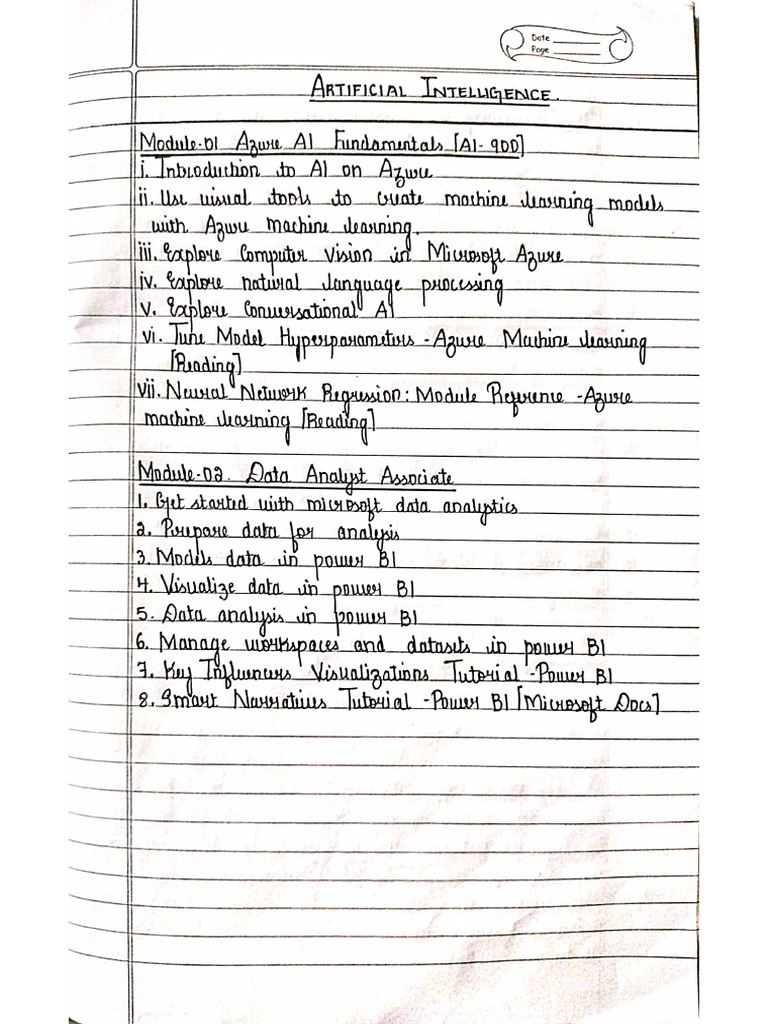 Date
Page
ARTIFICIAL INTELLIGENCE.
Module-01 Azure AI Fundamentals [AI-900]
i. Introduction to AI on Azure
ii. Use visual tools to create machine learning models
with Azure machine learning.
iii. Explore Computer vision in Microsoft Azure
iv. Explore natural language processing
v. Explore Conversational AI
vi. Tune Model Hyperparameters - Azure Machine learning
[Reading]
vii. Neural Network Regression: Module Reference - Azure
machine learning [Reading]
Module-02. Data Analyst Associate
1. Get started with microsoft data analytics
2. Prepare data for analysis
3. Models data in power BI
4. Visualize data in power BI
5. Data analysis in power BI
6. Manage workspaces and datasets in power BI
7. Key Influencers Visualizations Tutorial - Power BI
8. Smart Narratives Tutorial - Power BI [Microsoft Docs]